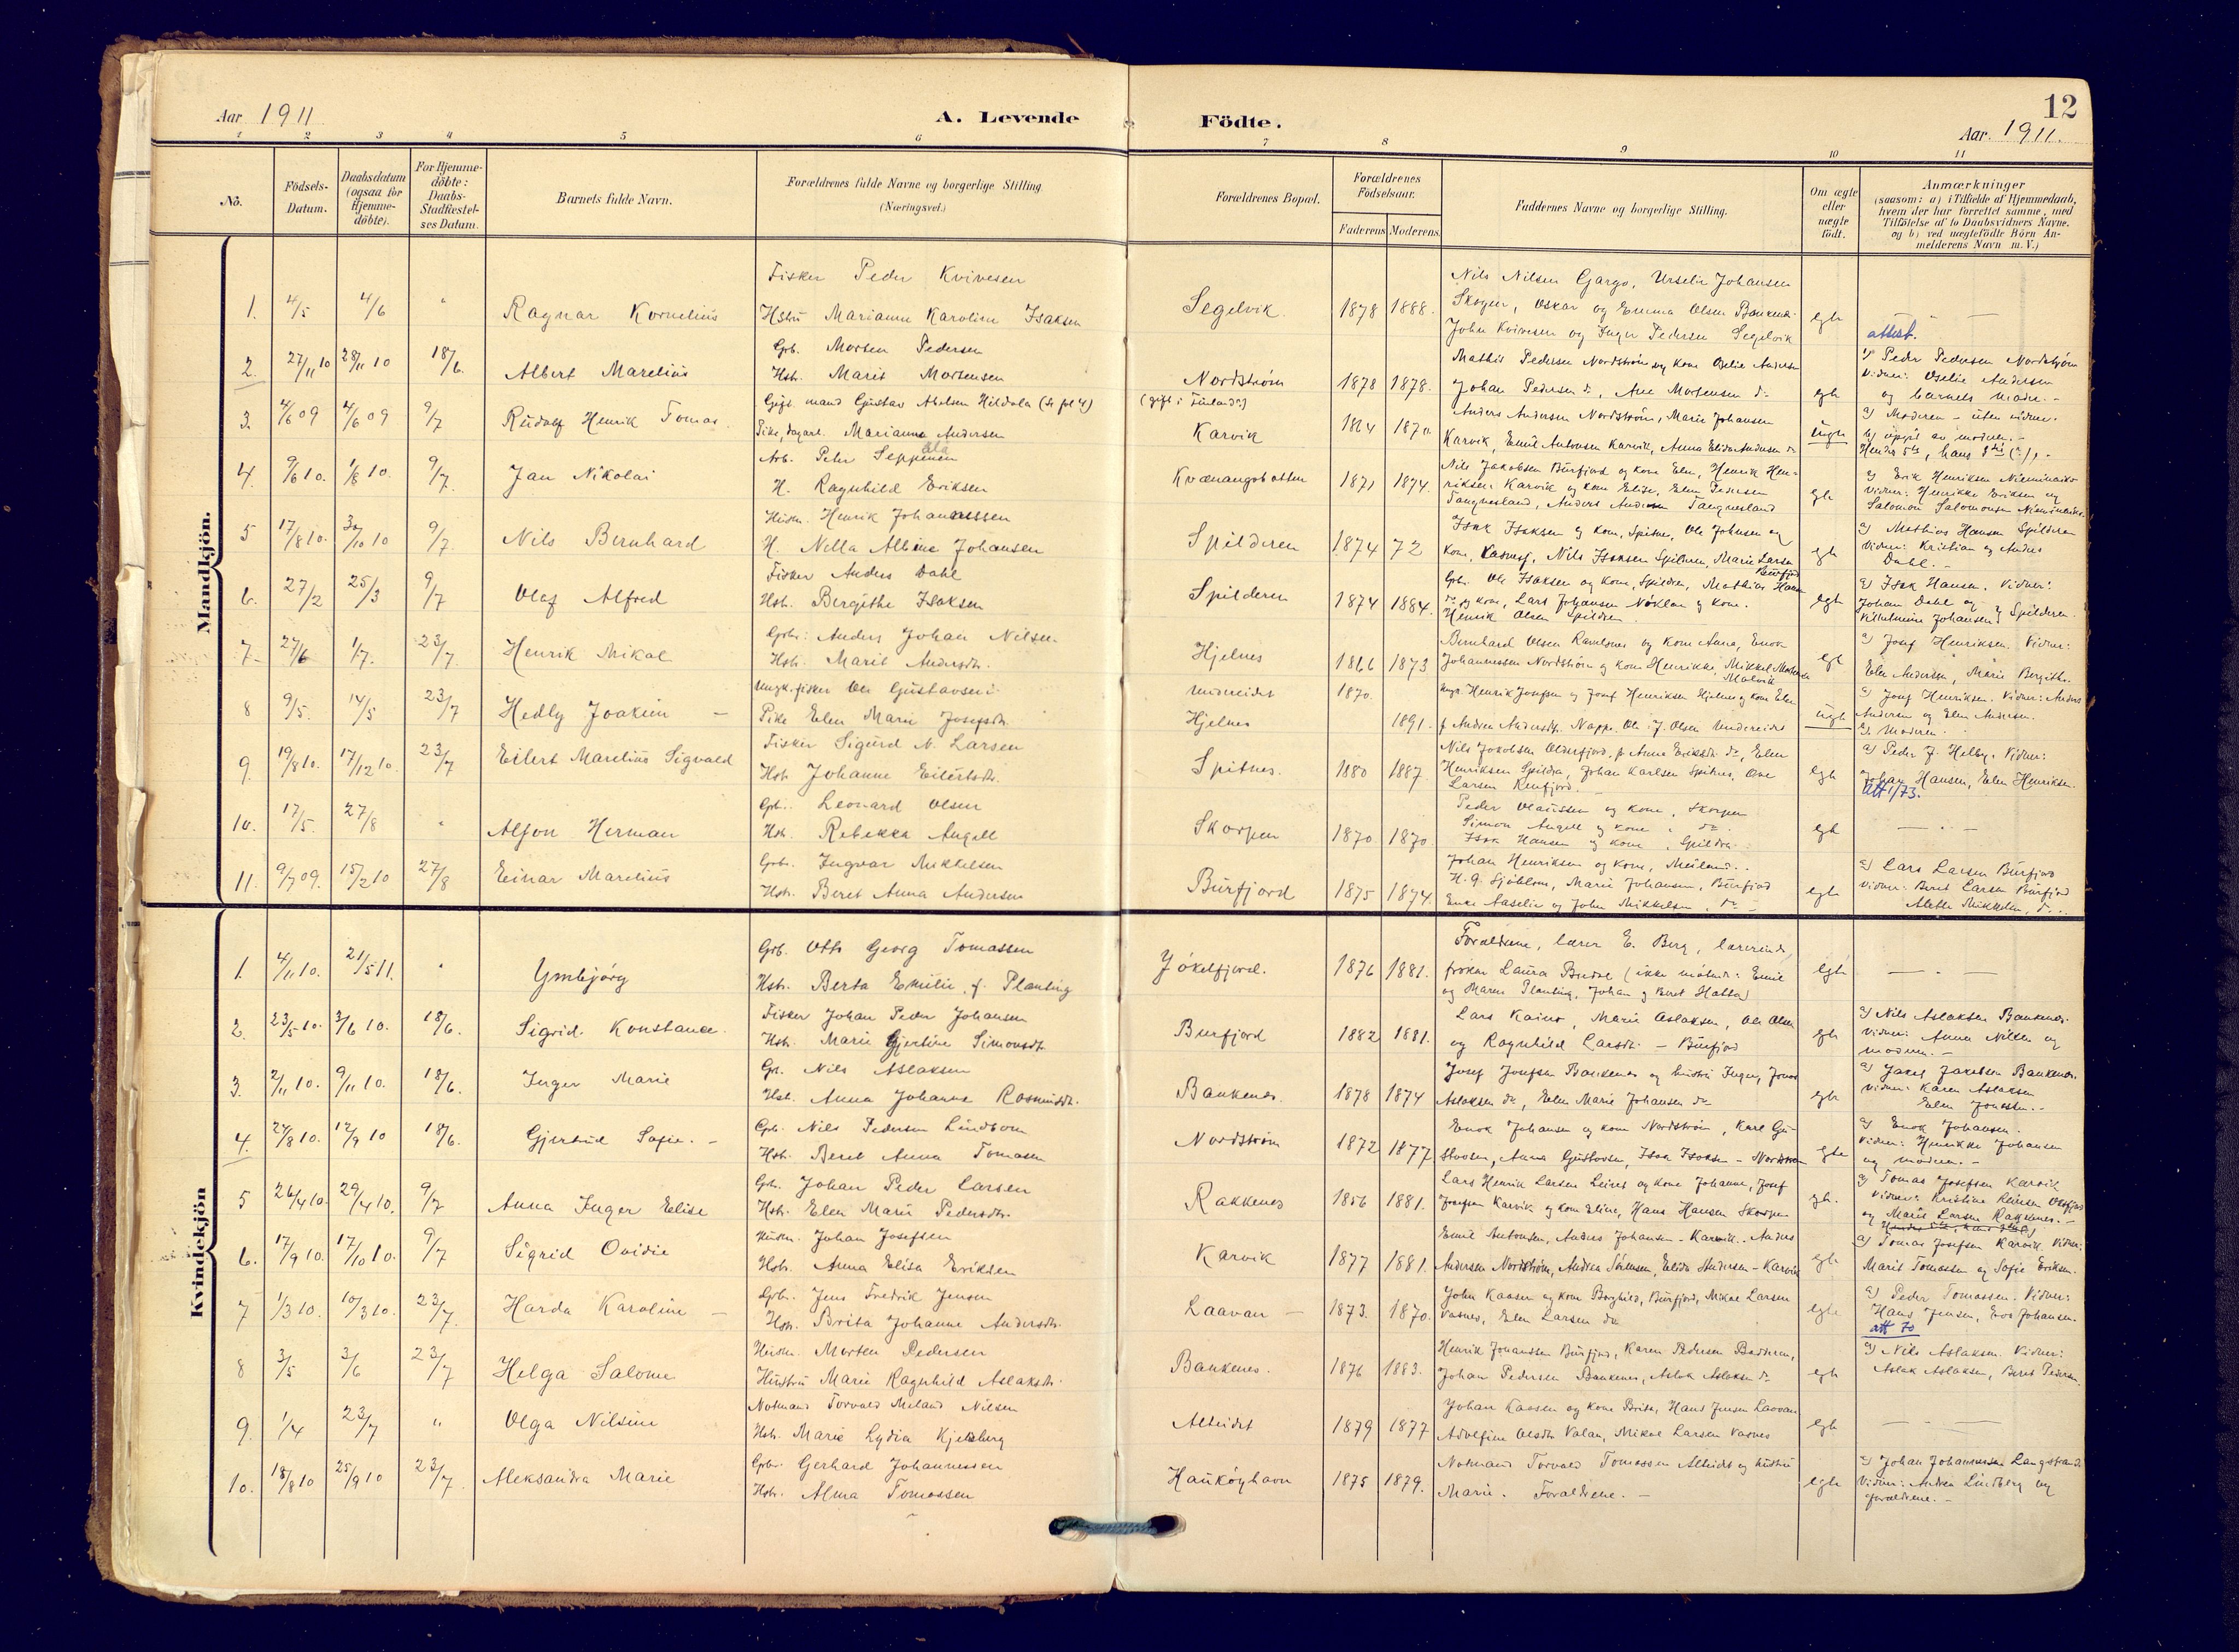 12
Aar 1911
A. Levende
Födte.
Aar 1911.
1 2 3 4 5 6 7 8 9 10 11
No.
Födsels-
Datum.
Daabsdatum
(ogsaa for
Hjemme-
döbte).
For Hjemme-
döbte:
Daabs-
Stadfæstel-
ses Datum.
Barnets fulde Navn.
Forældrenes fulde Navne og borgerlige Stilling
(Næringsvei.)
Forældrenes Bopæl.
Forældrenes
Födselsaar.
Faderens Moderens.
Faddernes Navne og borgerlige Stilling.
Om ægte
eller
uægte
födt.
Anmærkninger
(saasom: a) i Tilfælde af Hjemmedaab,
hvem der har forrettet samme, med
Tilföielse af to Daabsvidners Navne.
og b) ved uægtefödte Börn An-
melderens Navn m. V.)
Mandkjön.
Fisker Peder Kvivesen
Nils Nilsen Gargo, Urselie Johansen
1. 4/5 4/6 " Ragnar Kornelius Hstru Marianne Karoline Isaksen Segelvik. 1878 1888. Skogen, Oskar og Emma Olsen Bankenes egte — " —
John Kvivesen og Inger Pedersen Segelvik
attest.
Grb. Morten Pedersen
Mathis Pedersen Nordström og kone Oselie Andersen
a) Peder Pedersen Nordström
2. 27/11 10 28/11 10 18/6. Albert Marelius Hstr. Marit Mortensen Nordström 1878 1878. Johan Pedersen do, Ane Mortensen do egte
Vidner: Oselie Andersen
og barnets moder. -
Gift mand Gustav Abelsen Hildola (se pr 4) (gift i Finland?)
Anders Andersen Nordström, Marie Johansen
a) Moderen - uten vidner.
3. 4/6 09 4/6 09 9/7 Rudolf Henrik Tomas. Pike, dagarb. Marianna Andersen Karvik 1864 1870. Karvik, Emil Antonsen Karvik, Anna Elida Andersen do uegte
b) opgit av moderen. -
Arb. Peter Seppenen
Nils Jakobsen Burfjord og kone Elen, Henrik Hen-
4. 9/6 10. 1/8 10. 9/7. Jan Nikolai H. Ragnhild Eriksen Kvænangsbotten 1871 1874. riksen Karvik og kone Elise, Elen Pedersen egte
Tangnesland, Anders Andersen Tangnesland
a) Erik Henriksen Nieminaiko
Vidner: Henrikke Eriksen og
Salomon Salomonsen Nieminaiko.
Husm. Henrik Johannessen
Isak Isaksen og kone, Spitnes, Ole Johnsen og
a) Mathias Hansen Spilderen
5 17/8 10. 30/10 10 9/7. Nils Bernhard H. Nella Albine Johansen Spilderen 1874 72 kone, Nils Isaksen Spilderen, Marie Larsen Burfjord egte
Vidner: Kristian og Anders
Dahl. -
Fisker Anders Dahl
Grb. Ole Isaksen og kone, Spildren, Mathias Hansen
a) Isak Hansen. Vidner:
6. 27/2 25/3 9/7 Olaf Alfred Hstr. Bergithe Isaksen Spilderen 1874 1884. do og kone, Lars Johansen Nöklan og kone. egte
Henrik Olsen Spildren
Johan Dahl og
Vilhelmine Johansen } Spilderen
Grbr: Anders Johan Nilsen
Bernhard Olsen og kone Anna, Enok
a) Josef Henriksen. Vidner:
7. 27/6 1/7. 23/7. Henrik Mikal Hstr. Marit Andersdtr. Hjelnes 1866 1873 Johannessen Nordström og kone Henrikke, Mikkel egte
Elen Andersen, Marie Bergithe.
Ungk. fisker Ole Gustavsen: Undereidet 1870. Ungk. Henrik Josefsen og Josef Henriksen Hjelnes og kone Elen
a) Josef Henriksen. Vidner: Anders
8 9/5. 14/5 23/7 Hedly Joakim — Pike Elen Marie Josefsdtr. Hjelnes 1891. p. Andrea Andersdtr. Nappe, Ole J. Olsen Undereidet uegte
Andersen og Elen Andersen.
b) Moderen.
Fisker Sigurd N. Larsen
Nils Jakobsen Olderfjord, p. Anne Eriksdtr. do, Elen
a) Peder J. Helby. Vidner:
9. 19/8 10. 17/12 10. 23/7 Eilert Marelius Sigvald Hstr. Johanne Eilertsdtr. Spitnes. 1880 1887. Henriksen Spildra, Johan Karlsen Spitnes, Ove egte
Larsen
Johan Hansen, Elen Henriksen.
Att 1/73.
Grb. Leonard Olsen
Peder Olaussen og kone, Skorpen
10. 17/5. 27/8 " Alfon Herman Hstr. Rebekka Angell Skorpen 1870 1870. Simon Angell og kone, do egte — " —
Isak Hansen og kone, Spildra.
Grbr. Ingvar Mikkelsen
Johan Henriksen og kone, Meiland.
a) Lars Larsen Burfjord
11. 9/7 09. 15/2 10 27/8 Einar Marelius Hstr. Beret Anna Andersen Burfjord 1875 1874. H. G. Sjöblom, Marie Johansen, Burfjord egte
Enke Aaselie og John Mikkelsen, do
Vidner: Beret Larsen Burfjord
Alette Mikkelsen, do.
Kvindekjön
Grb. Otto Georg Tomassen
Forældrene, lærer E. Berg, lærerinde
1. 4/11 10. 21/5 11. " Ymbjörg Hstr. Berta Emilie, f. Planting Jökelfjord. 1876 1881. fröken Laura Bredal (ikke mötende: Emil egte — " —
og Maren Planting, Johan og Beret Hatta)
Fisker Johan Peder Johansen
Lars Kaino, Marie Aslaksen, Ole Olsen
a) Nils Aslaksen Bankenes.
2. 23/5 10. 3/6 10. 18/6. Sigrid Konstance. Hstr. Marie Gjertine Simonsdtr. Burfjord 1882 1881. og Ragnhild Larsdtr. - Burfjord egte
Vidner: Anna Nilsen og
moderen. -
Gr. Nils Aslaksen
Josef Josefsen Bankenes og hustru Inger, Jonas
a) Jakob Jakobsen Bankenes.
3. 2/11 10. 9/11 10. 18/6. Inger Marie Hstr. Anna Johanna Rasmusdtr. Bankenes. 1878 1874 Aslaksen do, Elen Marie Johansen do egte
Vidner: Karen Aslaksen
Elen Jonsen. -
Grb. Nils Pedersen Lindbom
Enok Johansen og kone Nordström, Karl Gu-
a) Enok Johansen.
4. 24/8 10. 12/9 10 18/6. Gjertrud Sofie. - Hstr. Beret Anna Tomasen Nordström 1872 1877 stavsen, Anna Gustavsen, Isak Isaksen - Nordström egte
Vidner: Henrikke Johansen
og moderen. -
Grb. Johan Peder Larsen
Lars Henrik Larsen Leines og kone Johanne, Josef
a) Tomas Josefsen Karvik
5 26/4 10. 29/4 10. 9/7 Anna Inger Elise Hstr. Elen Marie Pedersdtr. Rakkenes 1856 1881. Josefsen Karvik og kone Eline, Hans Hansen Skorpen egte.
og Marie Larsen Rakkenes. -
Husm. Johan Josefsen
Emil Antonsen, Anders Johansen - Karvik. Anders
a) Tomas Josefsen Karvik. Vidner:
6. 17/9 10. 17/10 10. 9/7 Sigrid Ovidie Hstr. Anna Elisa Eriksen Karvik 1877 1881. Andersen Nordström, Andrea Simonsen, Elida Andersen - Karvik egte Marit Tomassen og Sofie Eriksen.
Grbr. Jens Fredrik Jensen
John Kaasen og kone Borghild, Burfjord, Mikal Larsen
a) Peder Tomassen. Vidner:
7 1/3 10. 10/3 10. 23/7. Harda Karoline — Hstr. Brita Johanne Andersdtr. Laavan — 1873. 1870. Vasnes, Elen Larsen do egte
Hans Jensen, Eva Johansen.
att 70
Husm. Morten Pedersen
Henrik Johansen Burfjord, Karen Pedersen Badderen,
a) Nils Aslaksen. Vidner:
8 3/5 3/6 23/7 Helga Salome Hustru Marie Ragnhild Aslaksdtr. Bankenes. 1876 1883. Johan Pedersen Bankenes, Aslak Aslaksen do egte Aslak Aslaksen, Beret Pedersen.
Notmand Torvald Meland Nilsen
Johan Kaasen og kone Brita, Hans Jensen Laavan
9. 1/4 23/7 " Olga Nilsine Hstr. Marie Lydia Kjelsberg Alteidet 1879 1877 Adolfine Olsdtr. Valan, Mikal Larsen Vasnes egte — " —
Grbr. Gerhard Johannessen
Notmand Torvald Tomassen Alteidet og hustru
a) Johan Johannessen Langstrand.
10. 18/8 10 25/9 10 23/7. Aleksandra Marie Hstr. Alma Tomassen Hauköyhavn 1875 1879. Marie. Forældrene. - egte
Vidner: Andrea Lindberg og
forældrene. -